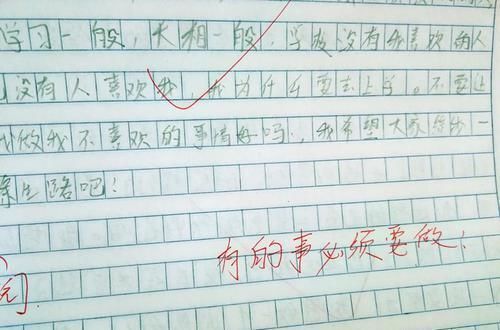 学习一般，大相一般，学校没有我喜欢的人
没有人喜欢我，我为什么要去上学。不要让
我做我不喜欢的事情好吗，我希望大家给我一
条生路吧！
有的事必须要做！